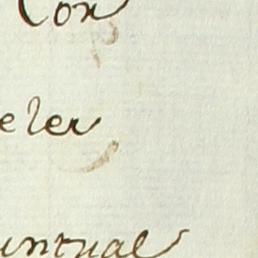 Con
eler
untual